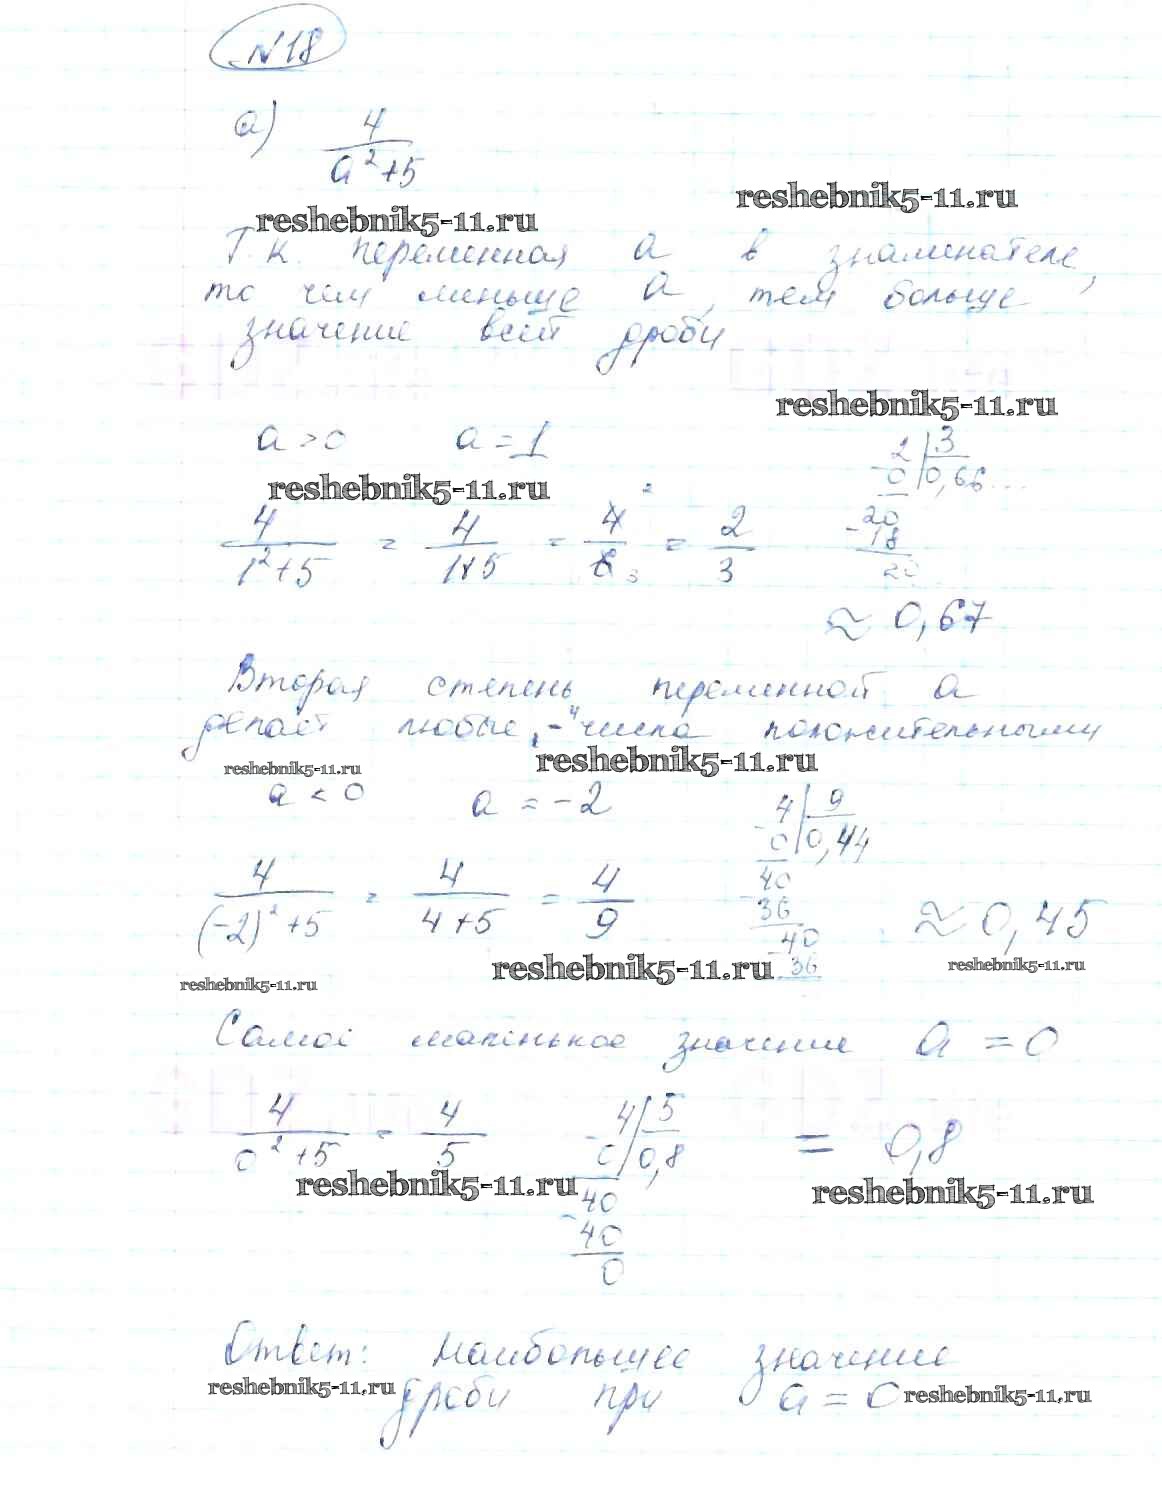 №18
а) 4
a²+5
reshebnik5-11.ru
reshebnik5-11.ru
Т.к. переменная а в знаменателе,
то чем меньше а, тем больше
значение всей дроби
reshebnik5-11.ru
a > 0 a = 1
2 | 3
0 | 0,66...
reshebnik5-11.ru
20
- 18
20
4/(1²+5) = 4/(1+5) = 4/6 = 2/3
≈ 0,67
Вторая степень переменной а
делает любые "-" числа положительными
reshebnik5-11.ru
reshebnik5-11.ru
a < 0 a = -2
4 | 9
- 0 | 0,44
40
- 36
40
- 36
4/((-2)²+5) = 4/(4+5) = 4/9
≈ 0,45
reshebnik5-11.ru
reshebnik5-11.ru
reshebnik5-11.ru
Самое маленькое значение a = 0
4/(0²+5) = 4/5
4 | 5
- 0 | 0,8
40
- 40
0
= 0,8
reshebnik5-11.ru
reshebnik5-11.ru
Ответ: Наибольшее значение
дроби при a = 0
reshebnik5-11.ru
reshebnik5-11.ru